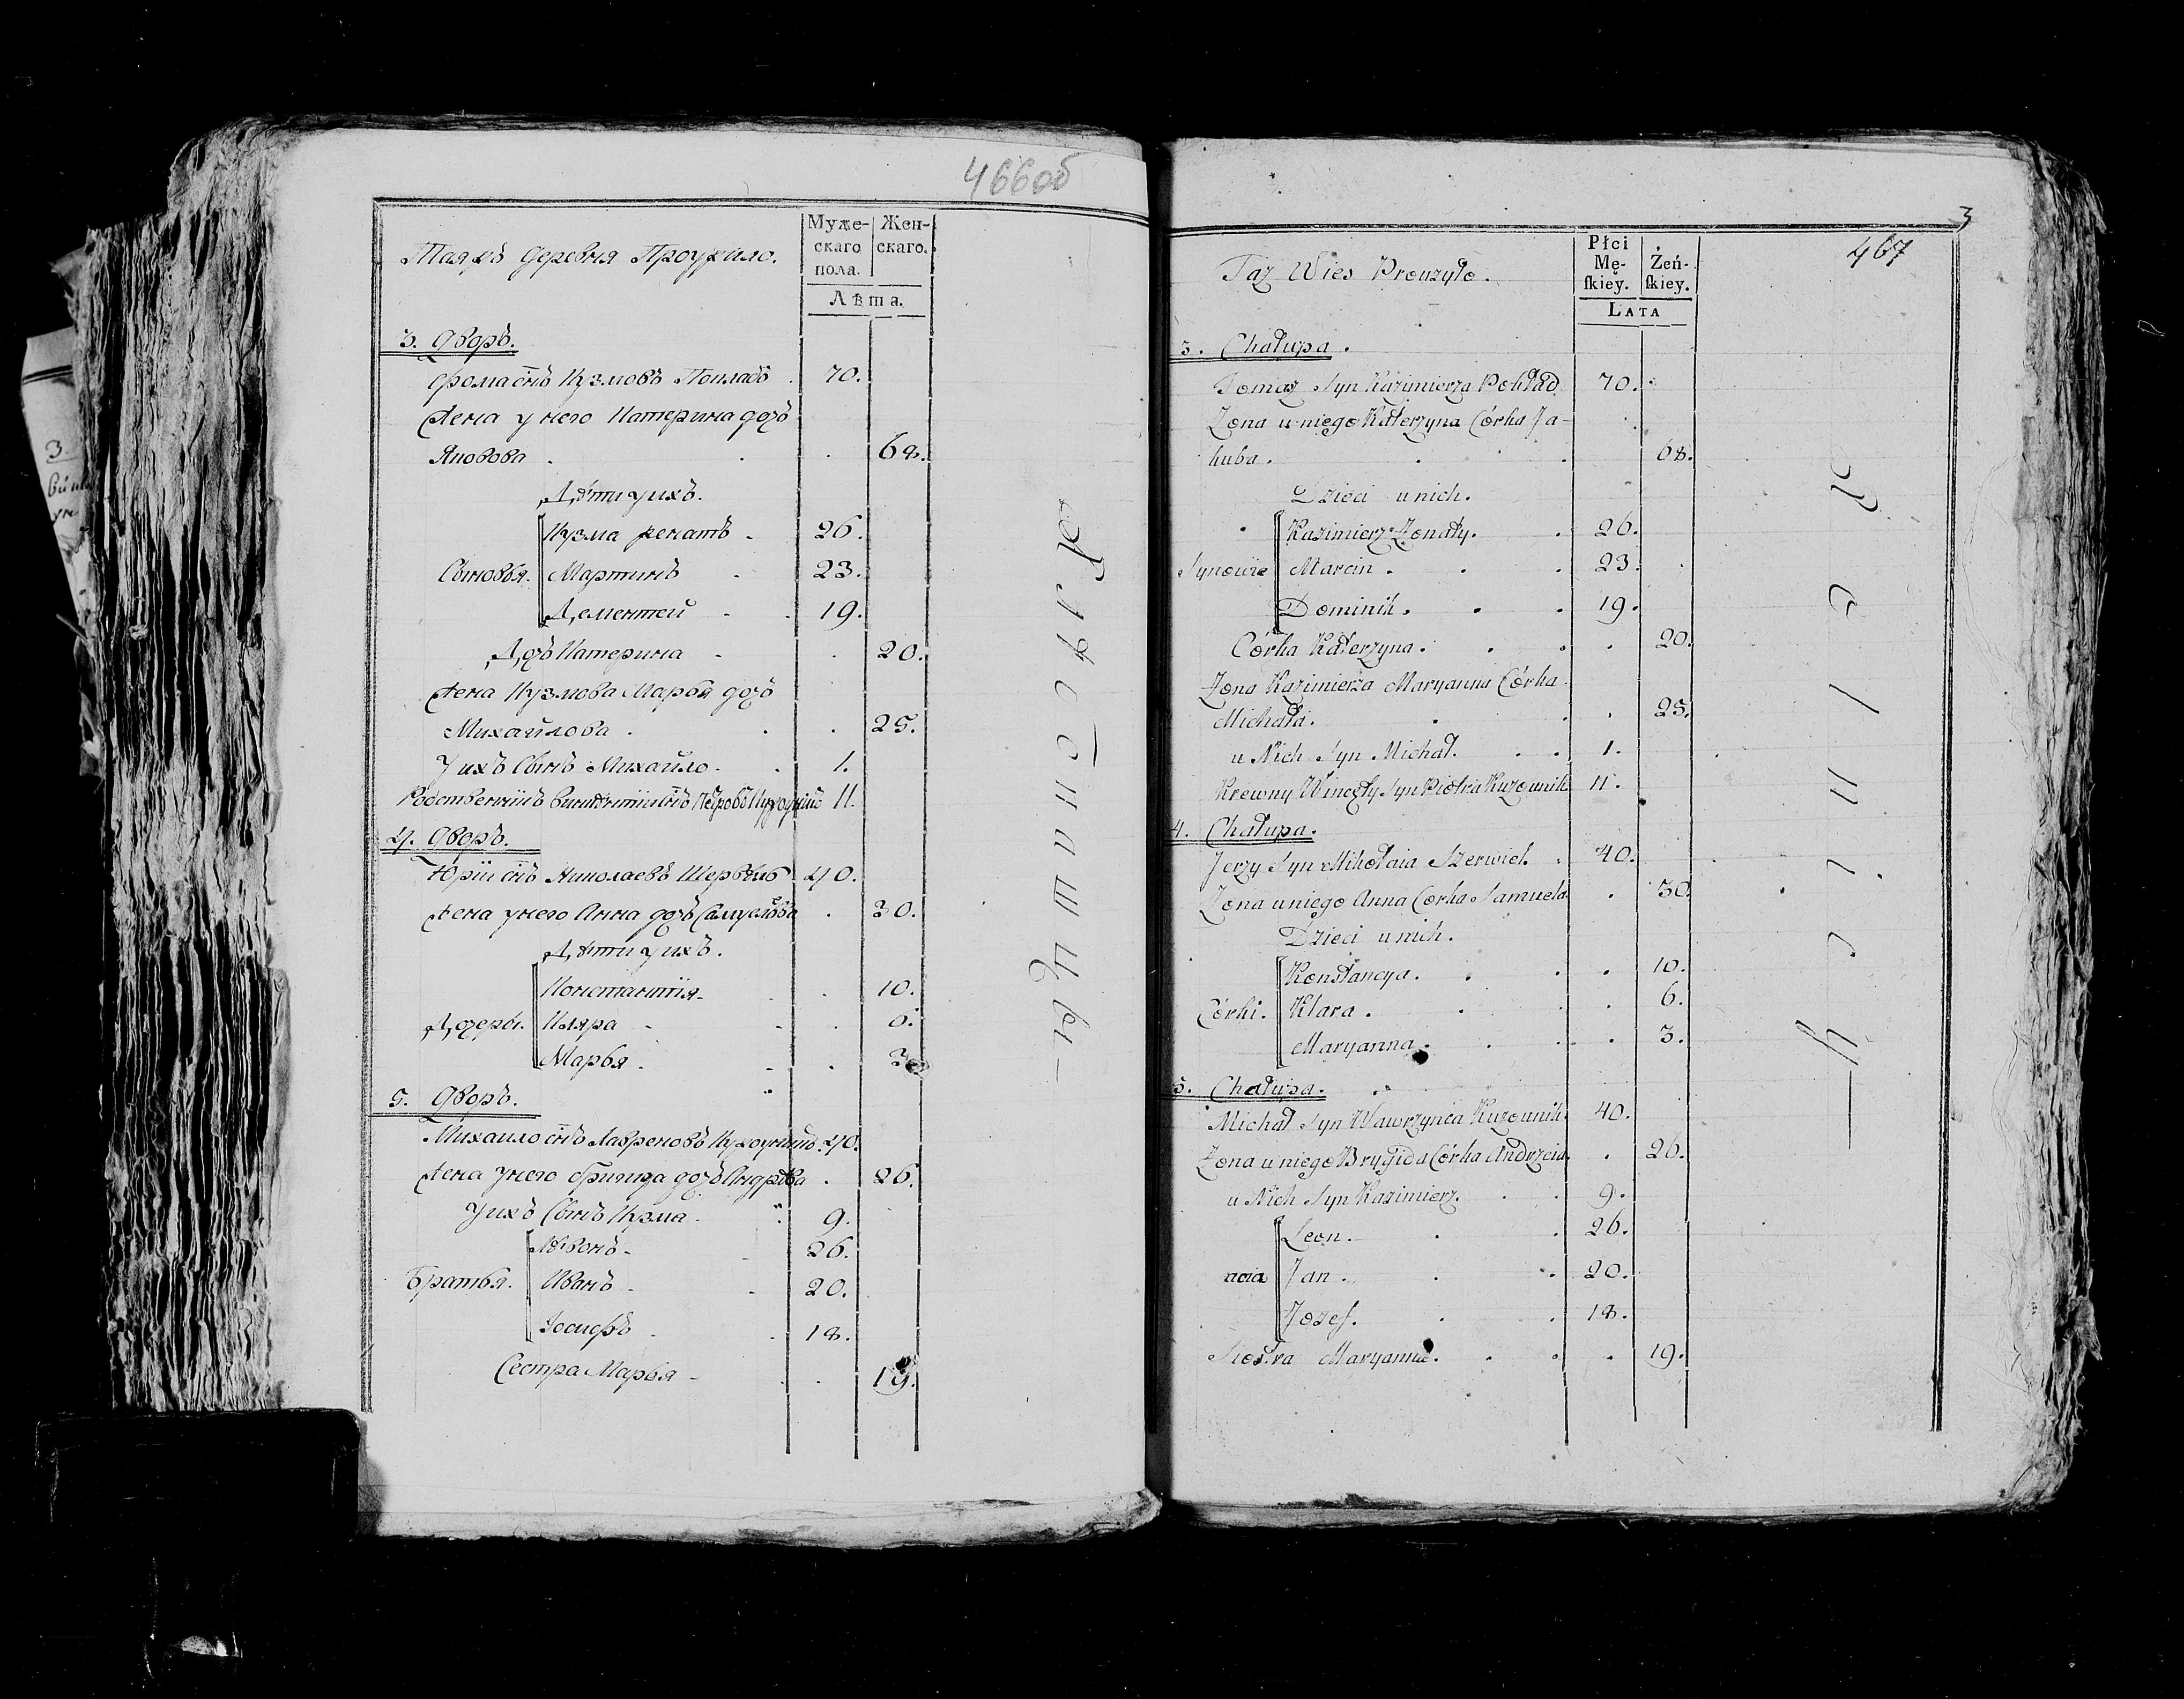 466об
Таяжъ деревня Проужило.
Муже-
скаго
пола.
Жен-
скаго.
Лѣта.
3. Дворъ.
Фома снъ Кузмовъ Покладъ 70.
Жена у него Катерина дочь
Яковова 68.
Дѣти у ихъ.
Кузма женатъ 26.
Сыновья. Мартинъ 23.
Дементей 19.
Дочь Катерина 20.
Жена Кузмова Марья дочь
Михайлова 25.
У ихъ Сынъ Михайло 1.
Родственникъ Викентій снъ Петровъ 11.
4. Дворъ.
Юрій снъ Николаевъ 40.
Жена у него Анна дочь Самуелева 30.
Дѣти у ихъ.
Константія 10.
Дочери. Кляра 6.
Марья 3
5. Дворъ.
Михайло снъ Лавреновъ 40.
Жена у него Бригида дочь Андрѣева 26.
У ихъ Сынъ Кузма 9.
Левонъ 26.
Братья. Иванъ 20.
Іосифъ 18.
Сестра Марья 19.
3
467
Taz Wies Prouzyło.
Płci
Mę-
skiey.
Żeń-
skiey.
LATA
3. Chałupa.
Tomaz Syn Kazimierza Pokład 70.
Zona u niego Katerzyna Córka Ja-
kuba. 68.
Dzieci u nich.
Kazimierz Zonaty. 26.
Synowie Marcin. 23.
Dominik. 19.
Córka Katerzyna. 20.
Zona Kazimierza Maryanna Córka
Michała. 25.
u Nich Syn Michał. 1.
Krewny Winczty Syn Piotra Kuzounik 11.
4. Chałupa.
Jerzy Syn Mikołaia Szerwich 40.
Zona u niego Anna Corka Samuela 30.
Dzieci u nich.
Konstancya. 10.
Córki. Klara. 6.
Maryanna. 3.
5. Chałupa.
Michał Syn Wawrzynca Kuzounik 40.
Zona u niego Brygida Córka Andrzeia 26.
u Nich Syn Kazimierz. 9.
Leon. 26.
Jan. 20.
Jozef. 18.
Siostra Maryanna. 19.